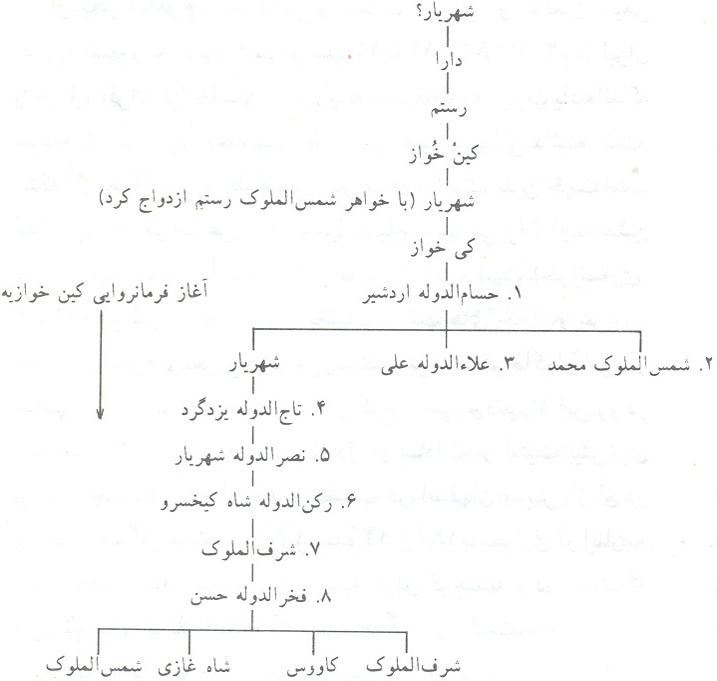 شهریار؟
دارا
رستم
کینْ خُواز
شهریار (با خواهر شمس‌الملوک رستم ازدواج کرد)
کی خواز
۱. حسام‌الدوله اردشیر
آغاز فرمانروایی کین خوازیه
۲. شمس‌الملوک محمد
۳. علاءالدوله علی
شهریار
۴. تاج‌الدوله یزدگرد
۵. نصرالدوله شهریار
۶. رکن‌الدوله شاه کیخسرو
۷. شرف‌الملوک
۸. فخرالدوله حسن
شرف‌الملوک
کاووس
شاه غازی
شمس‌الملوک